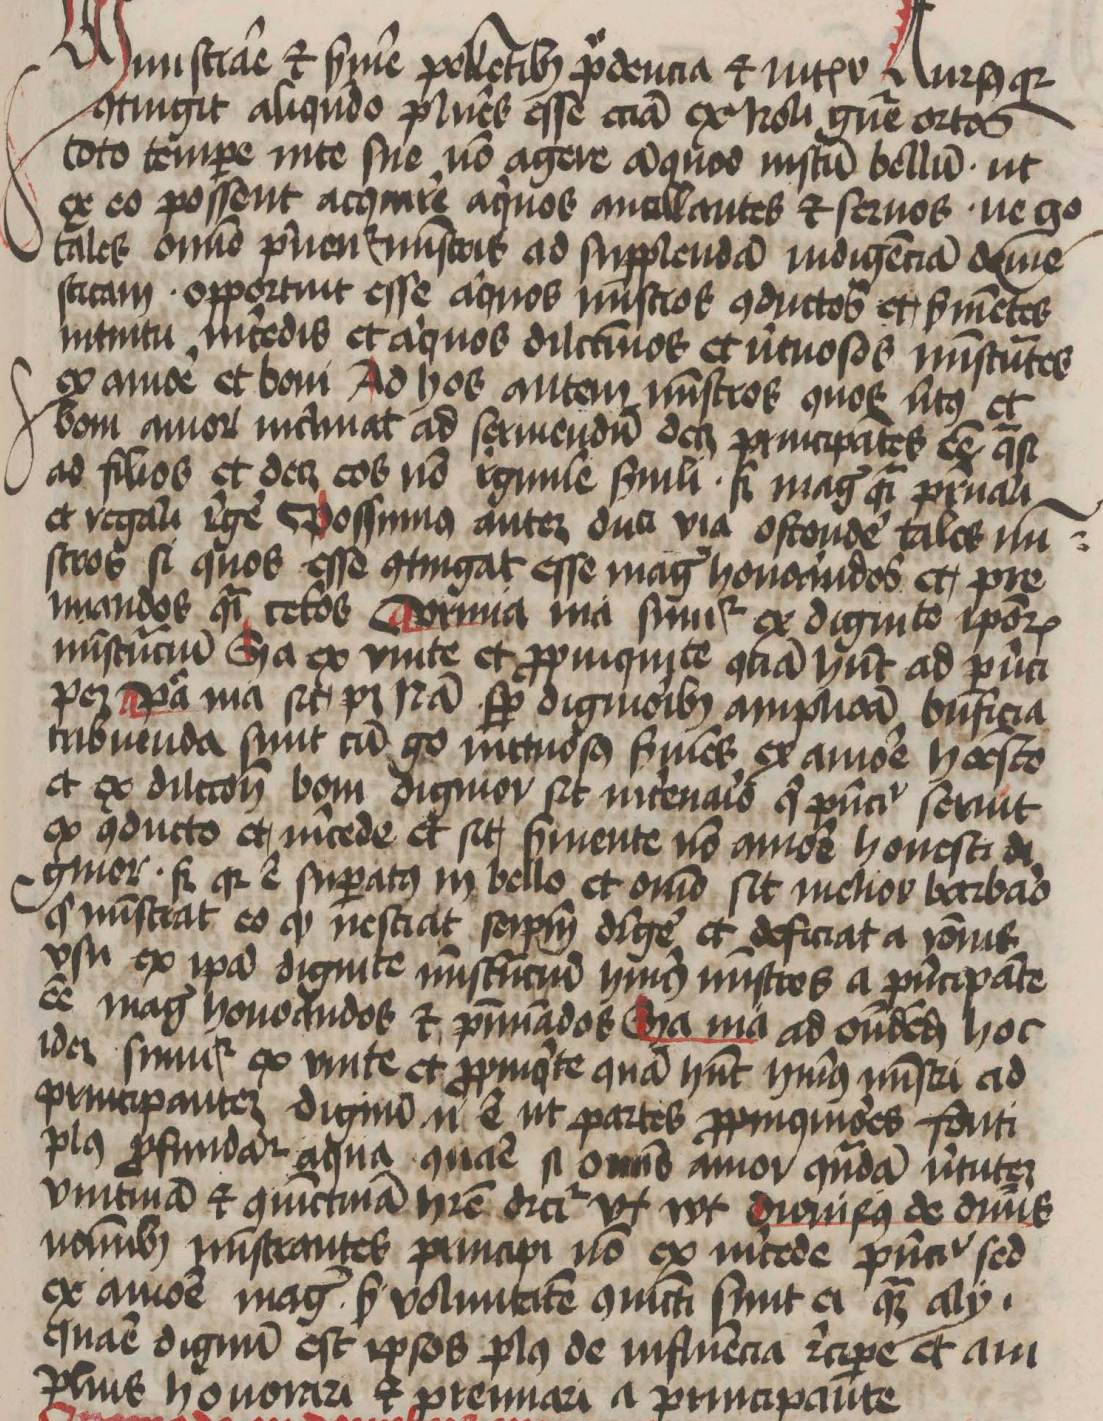 ministrare et servire pollentibus prudencia et
contingit aliquando plures esse eciam ex nobili genere ortos
toto tempore vite sue non agere aliquod iustum bellum · ut
ex eo possent acquirere aliquos ancillantes et servos · ne ergo
tales omnino priventur ministris ad supplendam indigenciam dome
sticam · opportuit esse aliquos ministros conductos et servientes
intuitu mercedis et aliquos dilectivos et virtuosos ministrantes
ex amore et boni Ad hos autem ministros quos virtus et
boni amor inclinat ad serviendum debet principantes esse quasi
ad filios et debet eos non regimine servili · sed magis quasi paternali
et regali regere Possumus autem duci via ostendere tales mini
stros si quos esse contingat esse magis honorandos et pre
miandos quam ceteros Prima via sumitur ex dignitate ipsorum
ministrancium Secunda ex unitate et propinquitate quam habent ad princi
pem Prima via sic patet Nam semper dignioribus ampliora beneficia
tribuenda sunt cum ergo virtuosus serviens ex amore honesto
et ex dilectione boni dignior sit mercenario qui principi servit
ex conducto et mercede et sit serviente non amore honesti di
gnior · sed quia est superatus in bello et omnino sit melior barbaro
qui ministrat eo quod nesciat seipsum dirigere et deficiat a rationis
usu ex ipsa dignitate ministrancium huiusmodi ministros a principante
esse magis honorandos et premiandos Secunda via ad ostendendum hoc
idem sumitur ex unitate et propinquitate quam habent huiusmodi ministri ad
principantem dignum enim est ut partes propinquiores fonti
plus perfundantur aqua quare si omnis amor quandam virtutem
unitivam et coniunctivam habere dicitur ut vult Dionisius de divinis
nominibus ministrantes principi non ex mercede principi sed
ex amore magis secundum voluntatem coniuncti sunt ei quam alii ·
quare dignum est ipsos plus de influencia recipere et am
plius honorari et premiari a principante